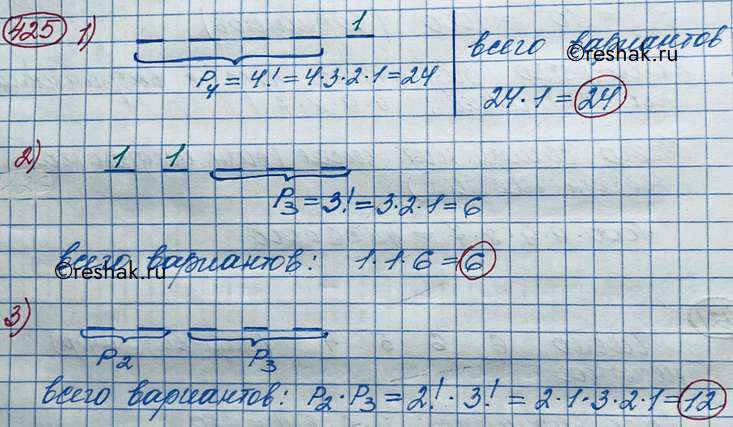 425 1) 1
P₄ = 4! = 4·3·2·1 = 24
всего вариантов
©reshak.ru
24·1 = 24
2) 1 1
P₃ = 3! = 3·2·1 = 6
всего вариантов: 1·1·6 = 6
©reshak.ru
3)
P₂ P₃
всего вариантов: P₂·P₃ = 2!·3! = 2·1·3·2·1 = 12
©reshak.ru